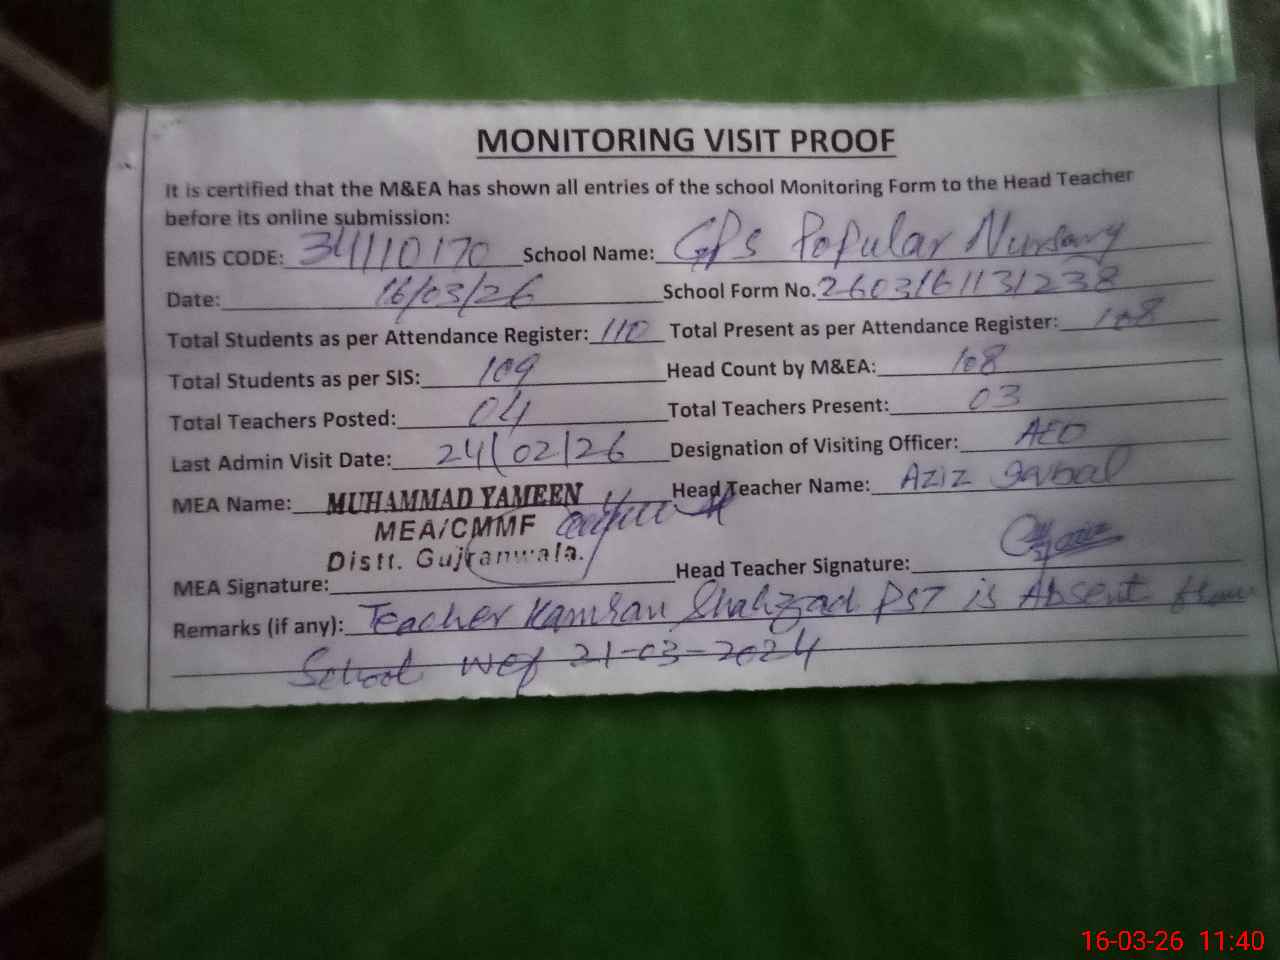 MONITORING VISIT PROOF
It is certified that the M&EA has shown all entries of the school Monitoring Form to the Head Teacher
before its online submission:
EMIS CODE: 34110170 School Name: GPS Popular Nursary
Date: 16/03/26 School Form No. 2603161131238
Total Students as per Attendance Register: 110 Total Present as per Attendance Register: 108
Total Students as per SIS: 109 Head Count by M&EA: 108
Total Teachers Posted: 04 Total Teachers Present: 03
Last Admin Visit Date: 24/02/26 Designation of Visiting Officer: AEO
MEA Name: MUHAMMAD YAMEEN Head Teacher Name: Aziz Iqbal
MEA/CMMF
Distt. Gujranwala.
MEA Signature: Head Teacher Signature:
Remarks (if any): Teacher Kamran Shahzad PST is Absent from
School wef 21-03-2024
16-03-26 11:40